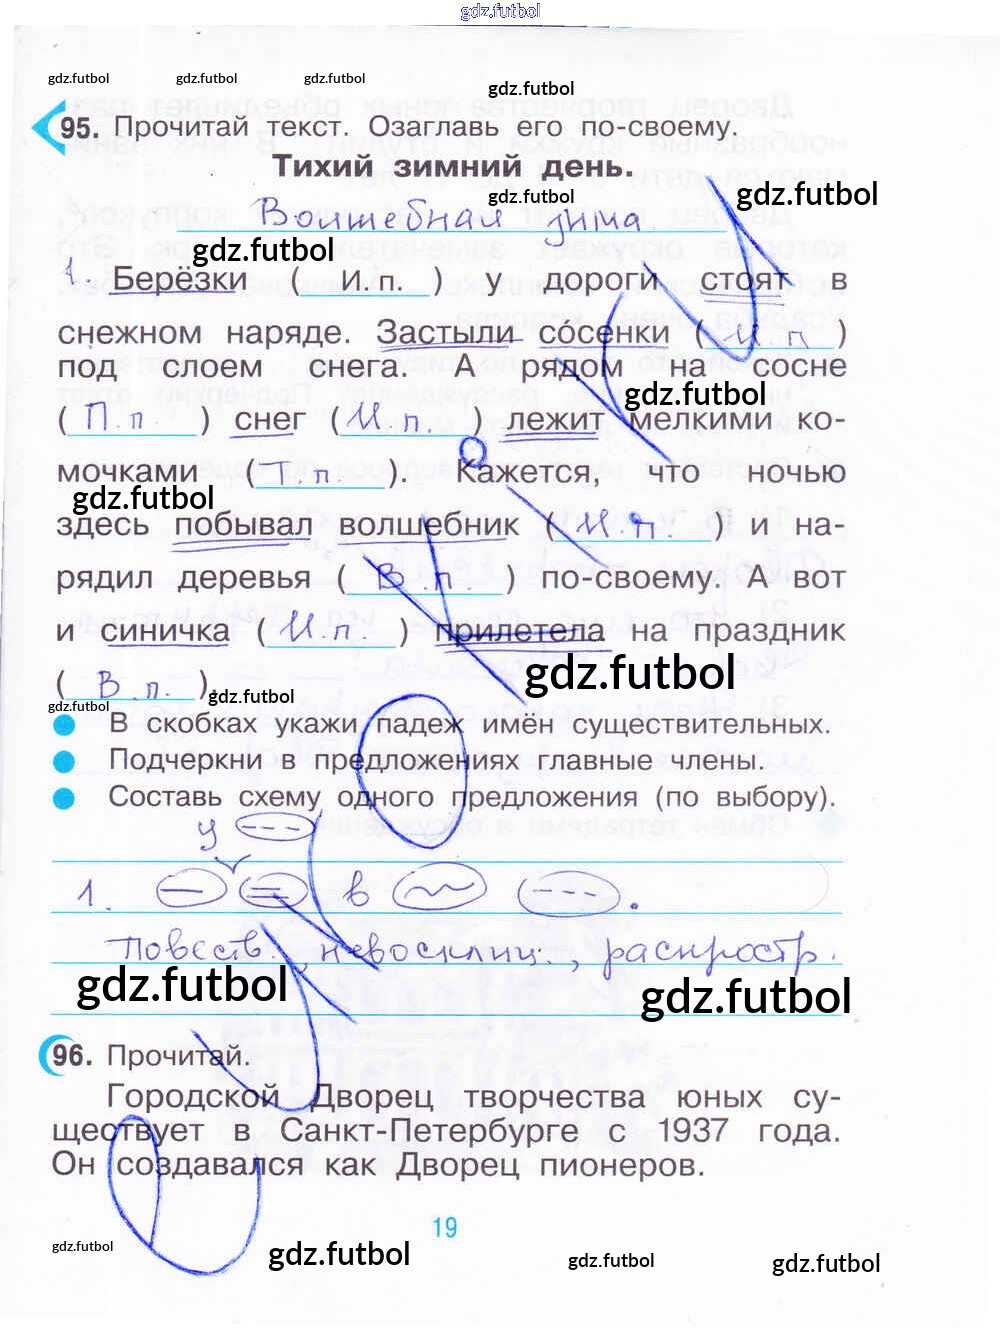 gdz.futbol
gdz.futbol gdz.futbol gdz.futbol
gdz.futbol
95. Прочитай текст. Озаглавь его по-своему.
Тихий зимний день.
gdz.futbol
gdz.futbol
Волшебная зима.
gdz.futbol
1. Берёзки ( И.п. ) у дороги стоят в
снежном наряде. Застыли сосенки ( И.п. )
под слоем снега. А рядом на сосне
gdz.futbol
( П.п. ) снег ( И.п. ) лежит мелкими ко-
мочками ( Т.п. ). Кажется, что ночью
gdz.futbol
здесь побывал волшебник ( И.п. ) и на-
рядил деревья ( В.п. ) по-своему. А вот
и синичка ( И.п. ) прилетела на праздник
gdz.futbol
( В.п. ).
gdz.futbol
gdz.futbol
В скобках укажи падеж имён существительных.
Подчеркни в предложениях главные члены.
Составь схему одного предложения (по выбору).
у
1. в .
Повеств., невосклиц., распростр.
gdz.futbol
gdz.futbol
96. Прочитай.
Городской Дворец творчества юных су-
ществует в Санкт-Петербурге с 1937 года.
Он создавался как Дворец пионеров.
19
gdz.futbol gdz.futbol gdz.futbol gdz.futbol